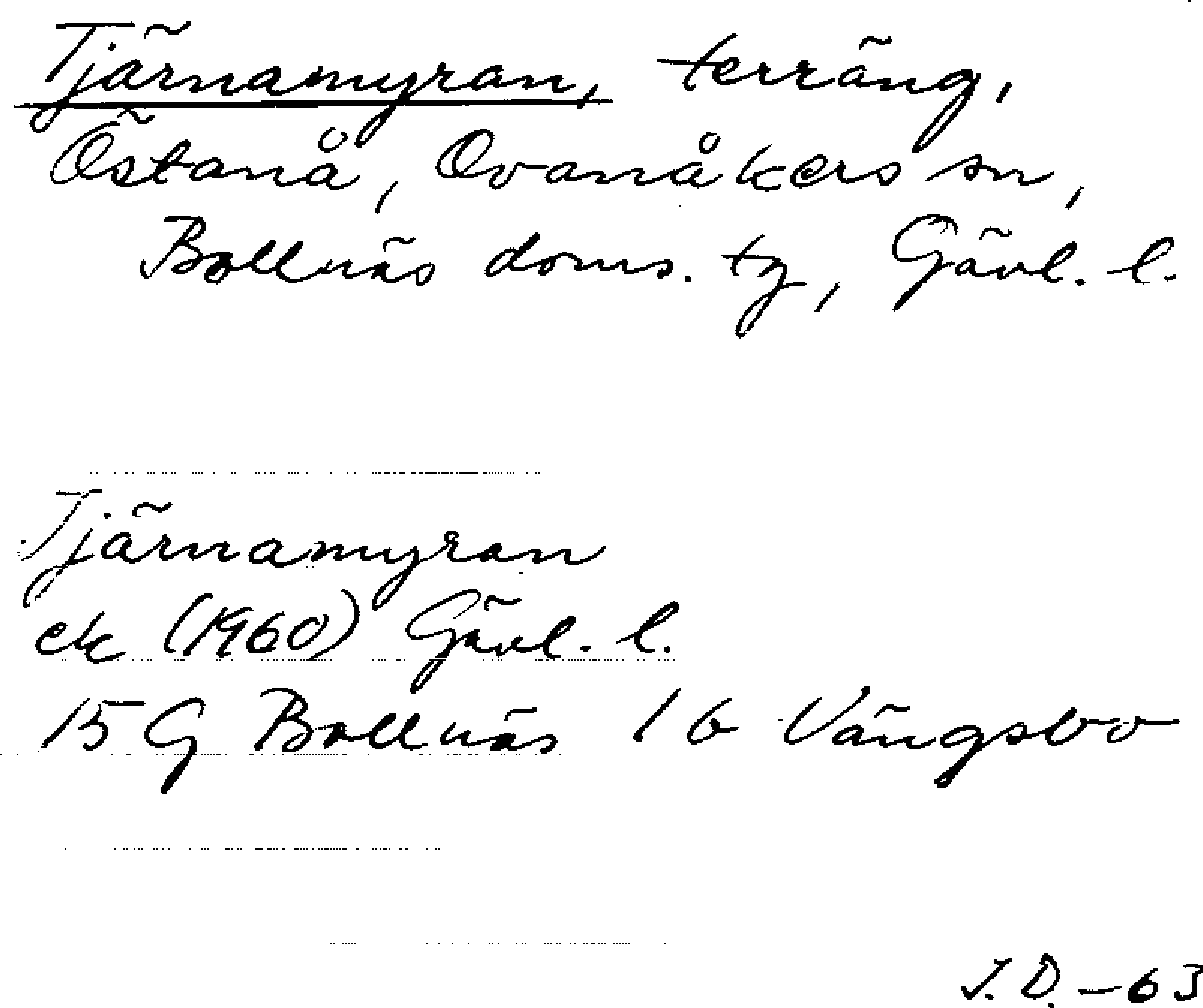 Tjärnamyran, terräng,
Östanå, Ovanåkers sn,
Bollnäs doms. tg, Gävl. l.
Tjärnamyran
ek (1960) Gävl. l.
15 G Bollnäs 1 b Vängsbo
J. D. - 63